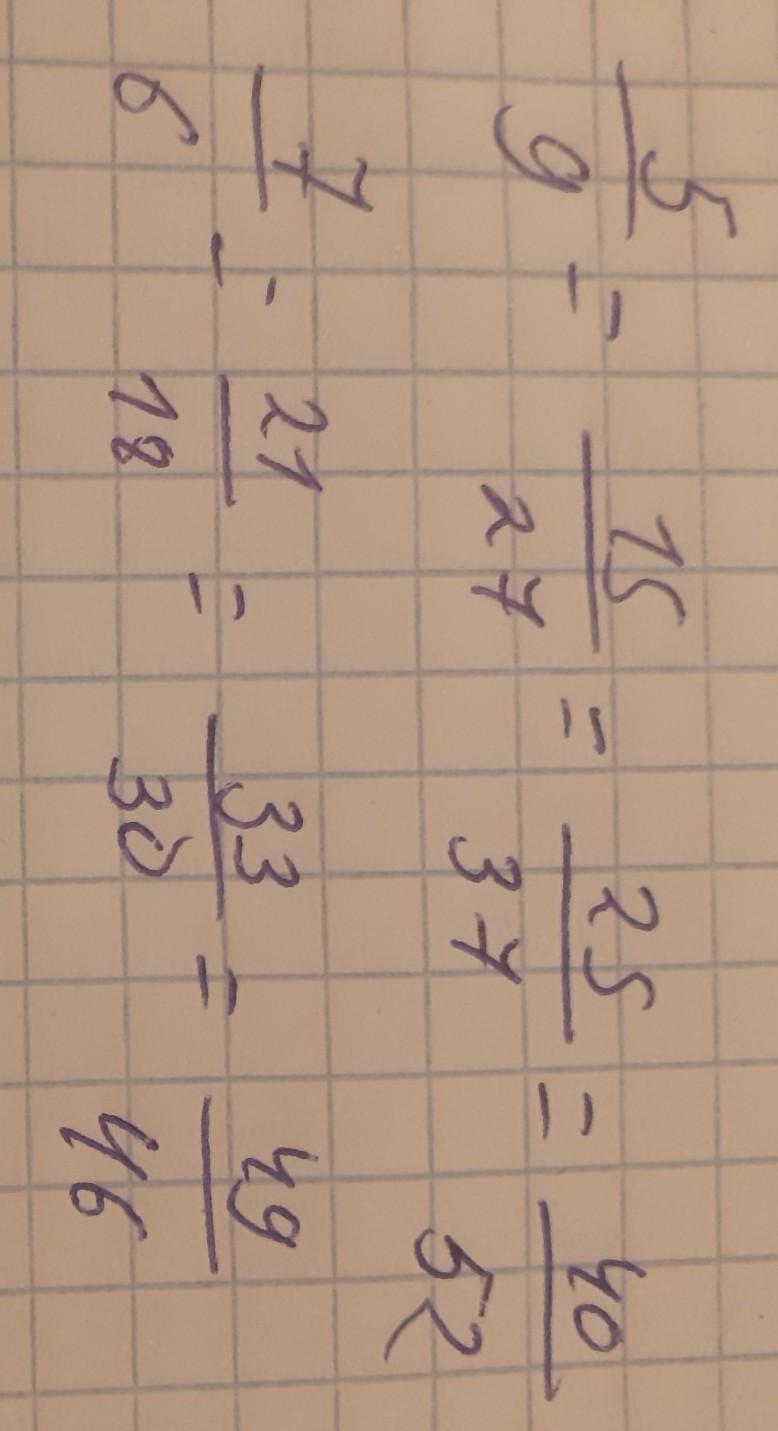 5/9 = 15/27 = 25/37 = 40/52
7/6 = 21/18 = 33/30 = 49/46